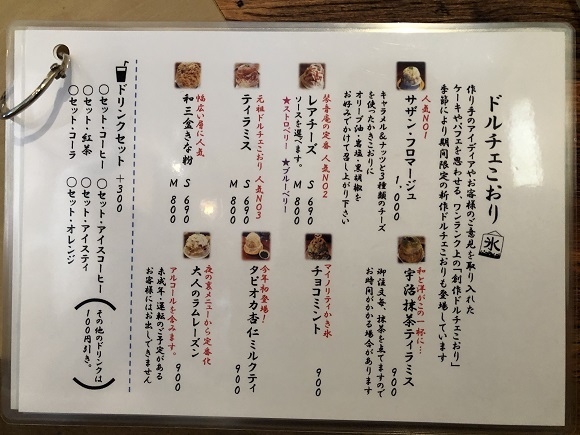 ドルチェこおり
氷
作り手のアイディアやお客様のご意見を取り入れた
ケーキやパフェを思わせる、ワンランク上の「創作ドルチェこおり」
季節により期間限定の新作ドルチェこおりも登場しています
人気NO1
サザン・フロマージュ
1,000
キャラメル&ナッツと3種類のチーズ
を使ったかきこおりに
オリーブ油・岩塩・黒胡椒を
お好みでかけて召し上がり下さい
琴音庵の定番 人気NO2
レアチーズ
S 690
M 800
ソースを選べます。
★ストロベリー ★ブルーベリー
元祖ドルチェこおり 人気NO3
ティラミス
S 690
M 800
幅広い層に人気
和三盆きな粉
S 690
M 800
和と洋がこの一杯に…
宇治抹茶ティラミス
900
御注文毎、抹茶を点てますので
お時間がかかる場合があります
マイノリティかき氷
チョコミント
900
今年初登場!
タピオカ杏仁ミルクティ
900
夜の裏メニューから定番化
大人のラムレーズン
900
アルコールを含みます。
未成年・運転のご予定がある
お客様にはお出しできません
ドリンクセット +300
○セット・コーヒー ○セット・アイスコーヒー
○セット・紅茶 ○セット・アイスティ
○セット・コーラ ○セット・オレンジ
(その他のドリンクは
100円引き。)